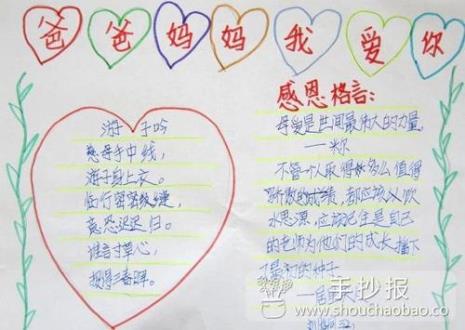 爸爸妈妈我爱你
感恩格言:
游子吟
慈母手中线,
游子身上衣。
临行密密缝,
意恐迟迟归。
谁言寸草心,
报得三春晖。
母爱是世间最伟大的力量。
—米尔
不管一个取得多么值得
骄傲的成绩,都应该饮
水思源,应该记住是自己
的老师为他们的成长播下
了最初的种子。
—居里
手抄报
www.shouchaobao.co